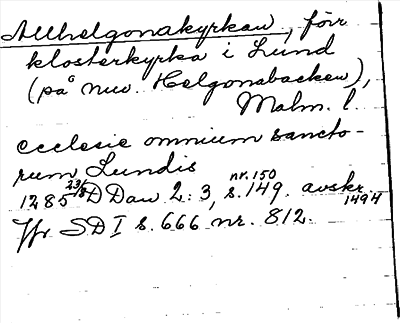 Allhelgonakyrkan, förr
klosterkyrka i Lund
(på nuv. Helgonabacken),
Malm. l.
ecclesie omnium sancto-
rum Lundis
1285 23/8 DDan 2:3, s. 149. nr. 150 avskr. 1494
Jfr SD I s. 666 nr. 812.